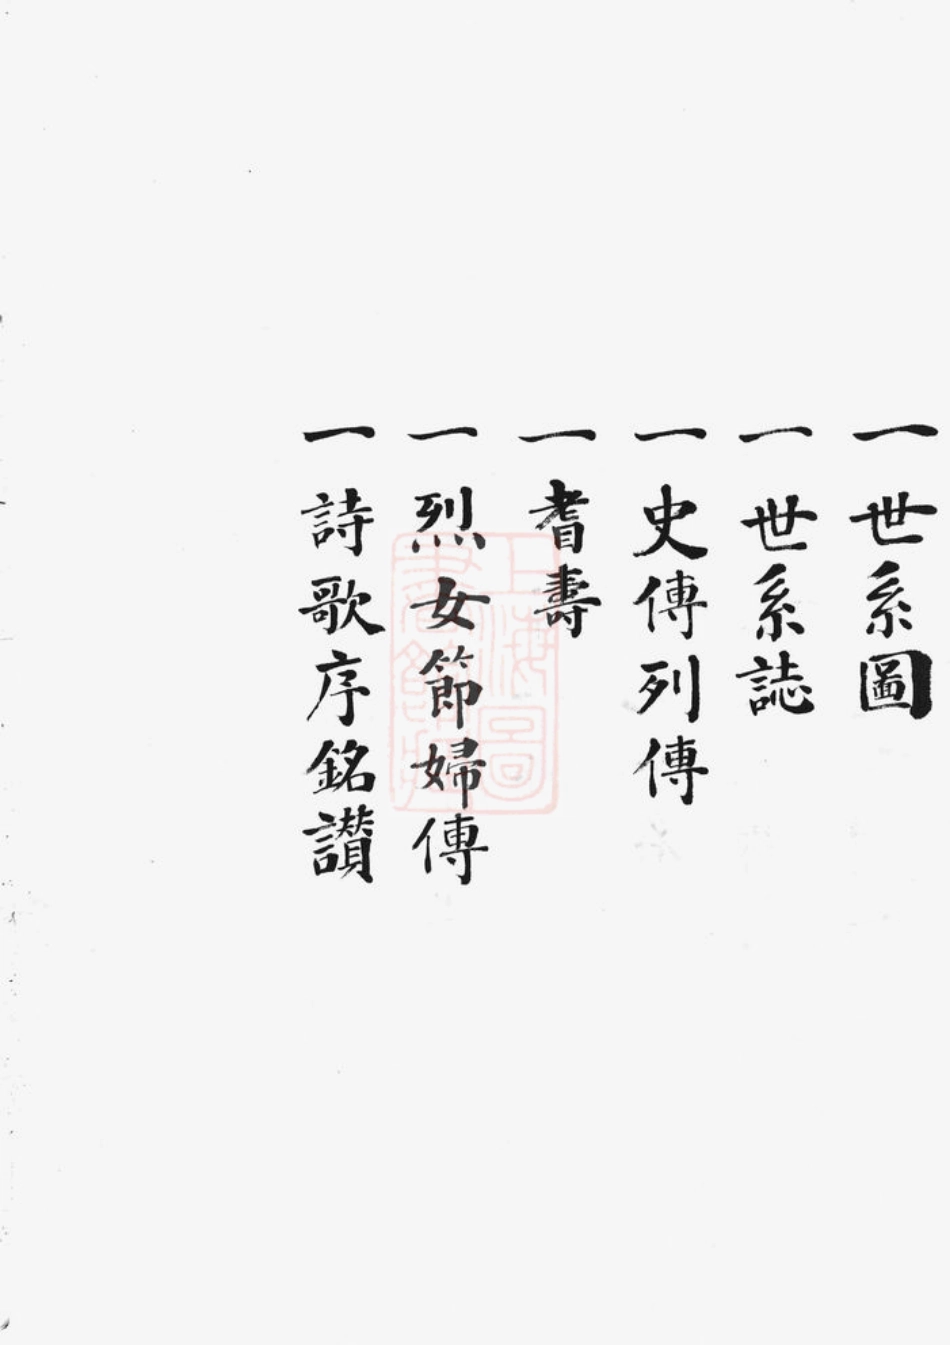 一世系圖
一世系誌
一史傳列傳
一耆壽
一烈女節婦傳
一詩歌序銘讚
上海圖書館藏